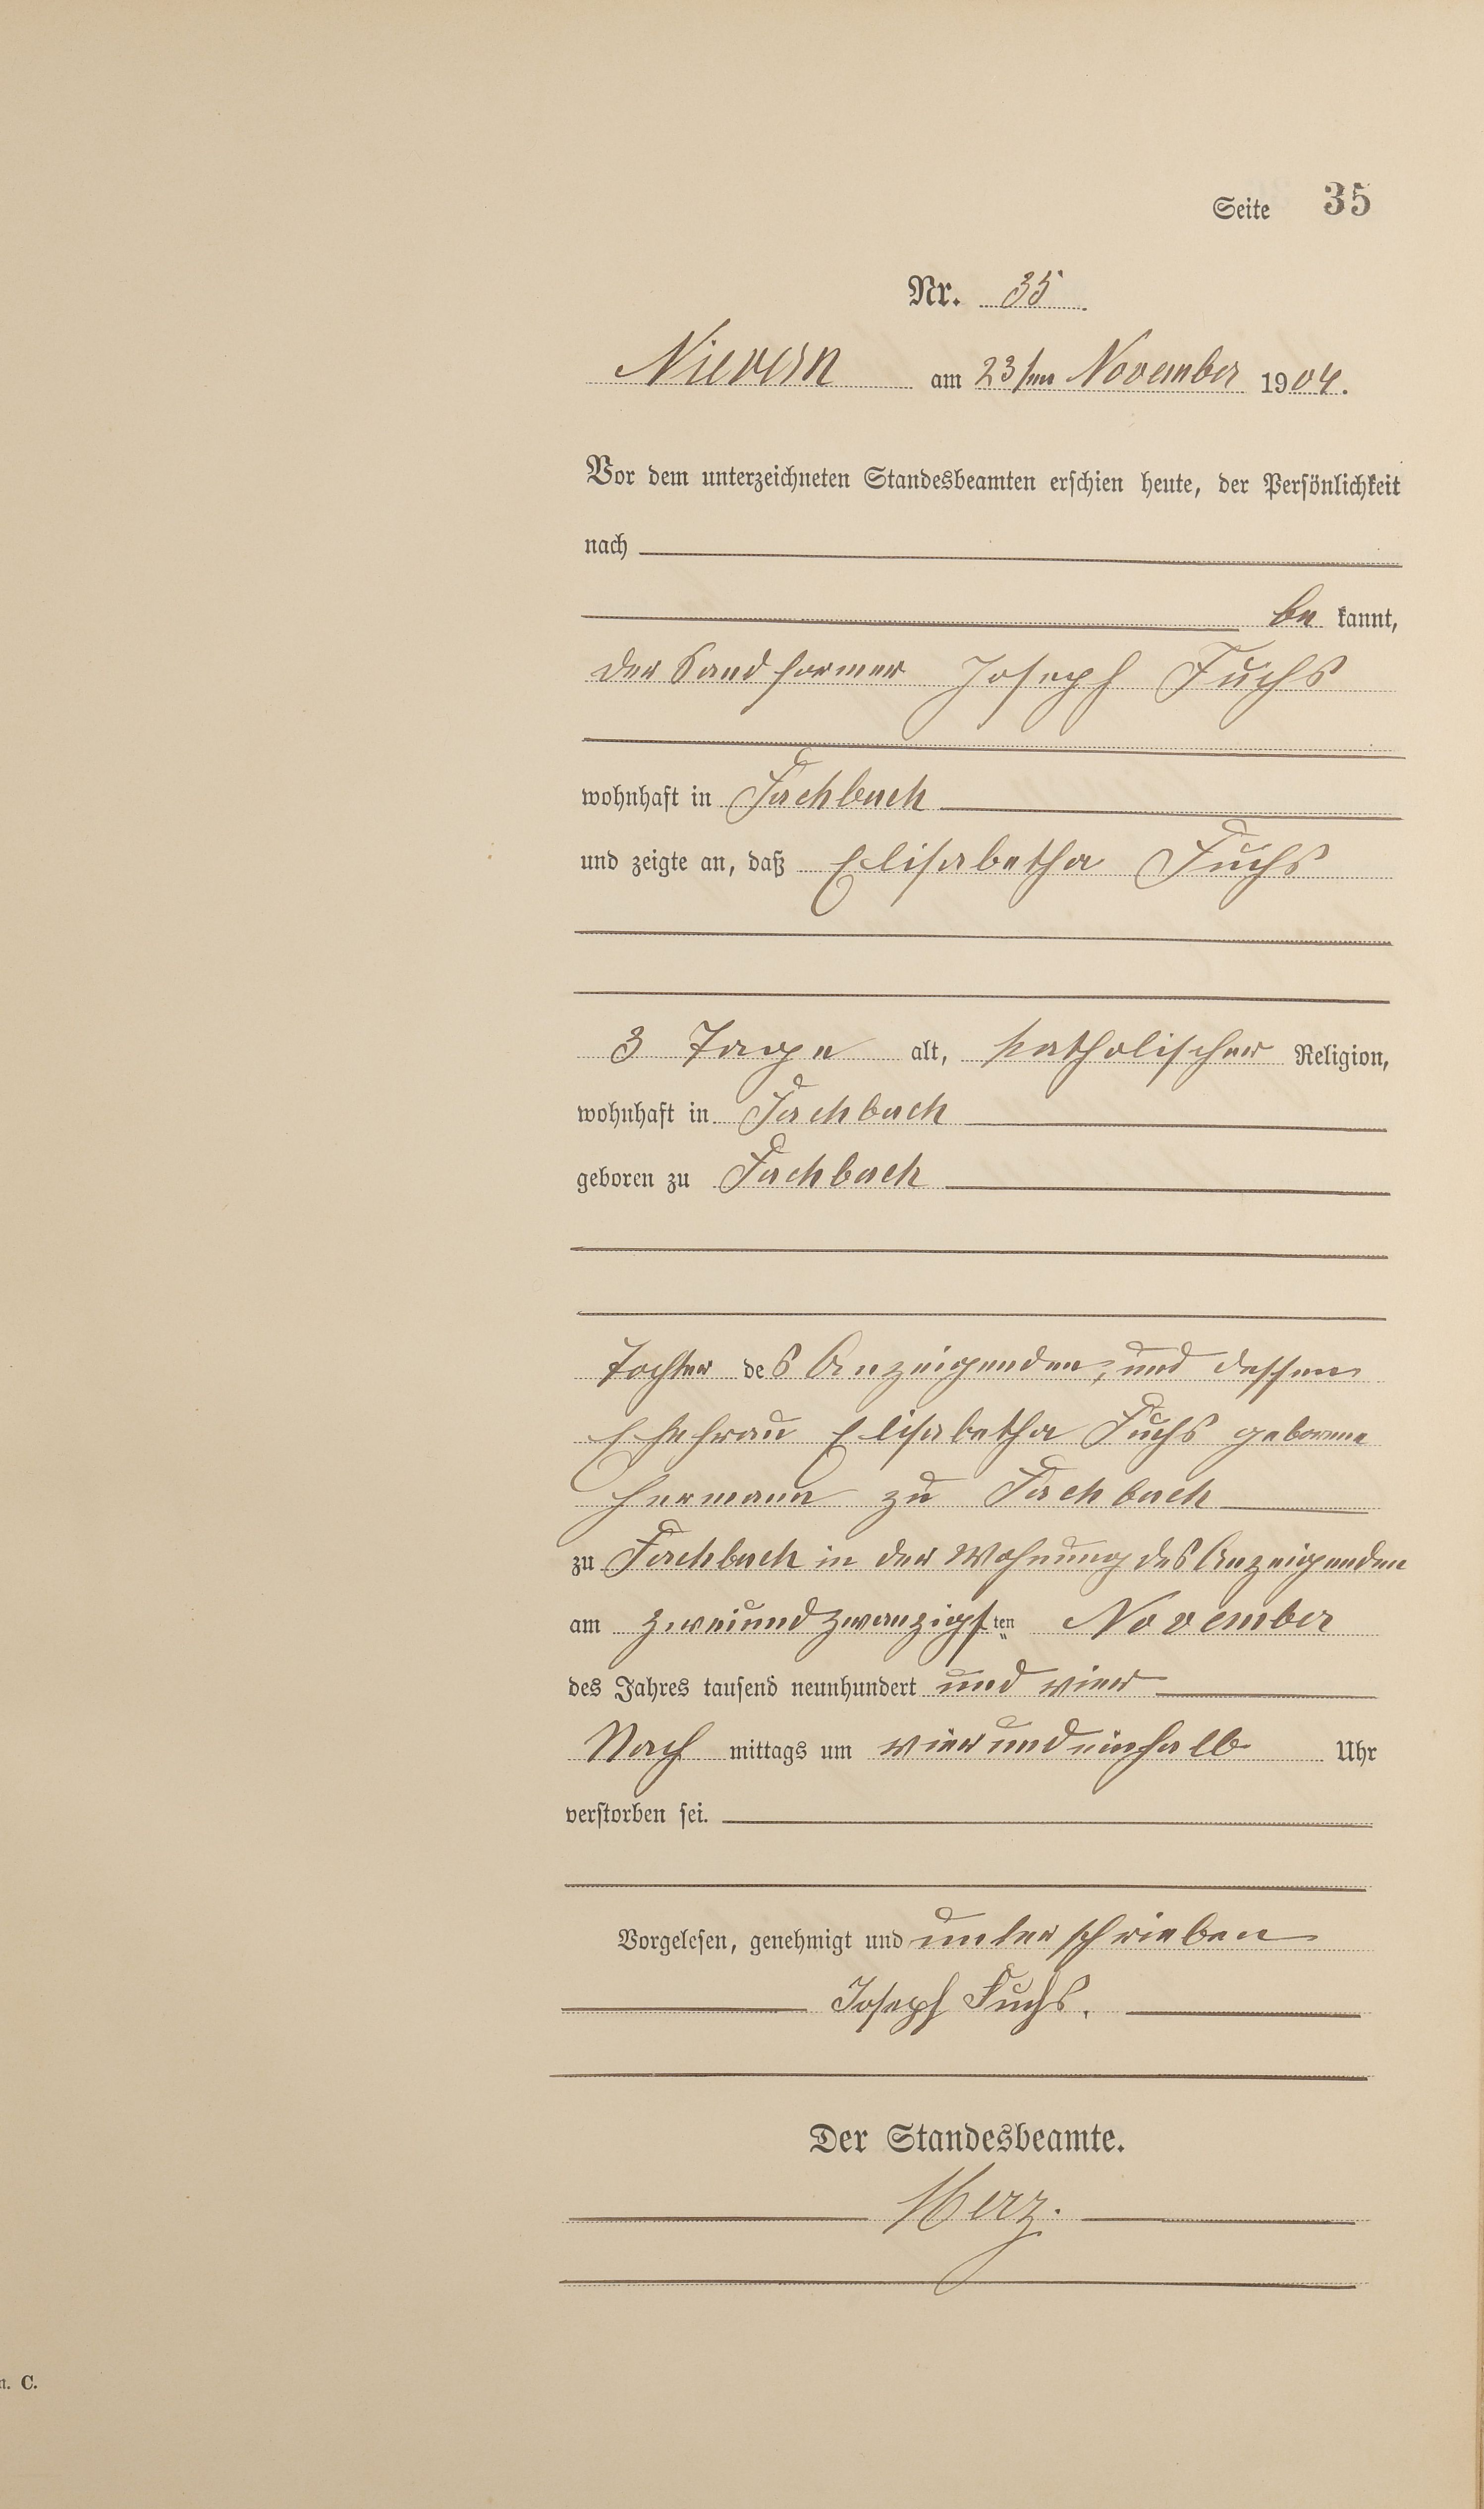 Seite 35
Nr. 35
Nievern am 23ten November 1904.
Vor dem unterzeichneten Standesbeamten erschien heute, der Persönlichkeit
nach
be kannt,
der Sandformer Joseph Fuchs
wohnhaft in Fachbach
und zeigte an, daß Elisabetha Fuchs
3 Tage alt, katholischer Religion,
wohnhaft in Fachbach
geboren zu Fachbach
Tochter des Anzeigenden, und dessen
Ehefrau Elisabetha Fuchs geborene
Hermann zu Fachbach
zu Fachbach in der Wohnung des Anzeigenden
am zweiundzwanzigsten November
des Jahres tausend neunhundert und vier
Nach mittags um vierundeinhalb Uhr
verstorben sei.
Vorgelesen, genehmigt und unterschrieben
Joseph Fuchs.
Der Standesbeamte.
Merz.
n. C.